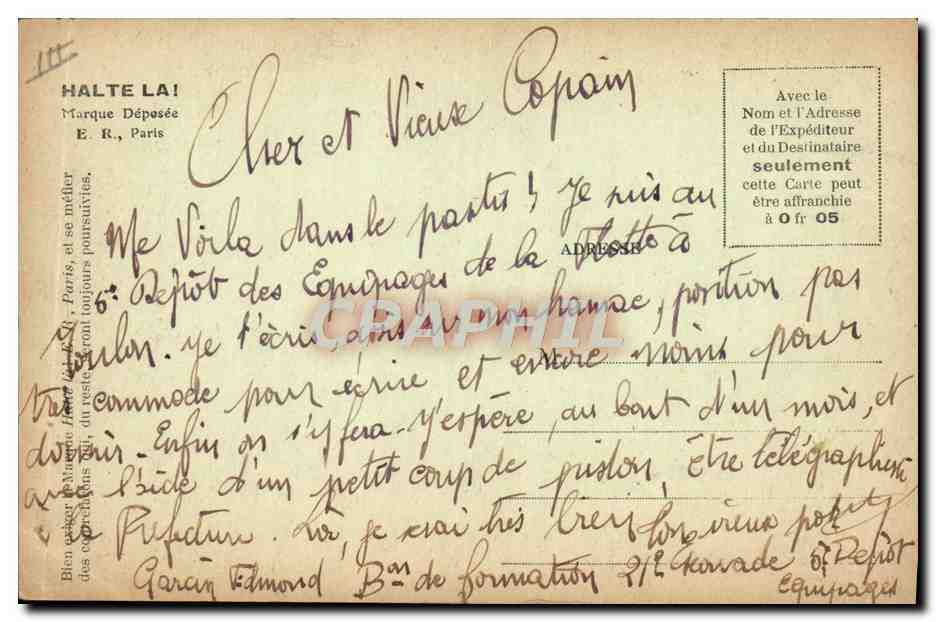 HALTE LA!
Marque Déposée
E. R., Paris
Avec le
Nom et l'Adresse
de l'Expéditeur
et du Destinataire
seulement
cette Carte peut
être affranchie
à 0 fr 05
ADRESSE
M
Bien exiger la Marque Halte là! E. R., Paris, et se méfier
des contrefaçons qui, du reste, seront toujours poursuivies.
CPARAMA
Cher et Vieux Copain
Me Voila dans le partis! Je suis au
5e Dépôt des Equipages de la Flotte à
Toulon. Je t'écris, assis sur mon hamac, position pas
très commode pour écrire et encore moins pour
dormir. Enfin on s'y fera. J'espère, au bout d'un mois, et
avec l'aide d'un petit coup de piston, être télégraphiste
à la Préfecture. Là, je serai très bien. Ton vieux pote
Garcin Edmond Bon de formation 21e Escouade 5e Dépôt
Equipages